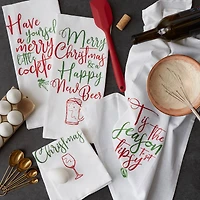 Have
yourself
a merry
little
cockta
Merry
Christmas
& a
Happy
New Beer
'Tis the
season
to be
tipsy
Christmas